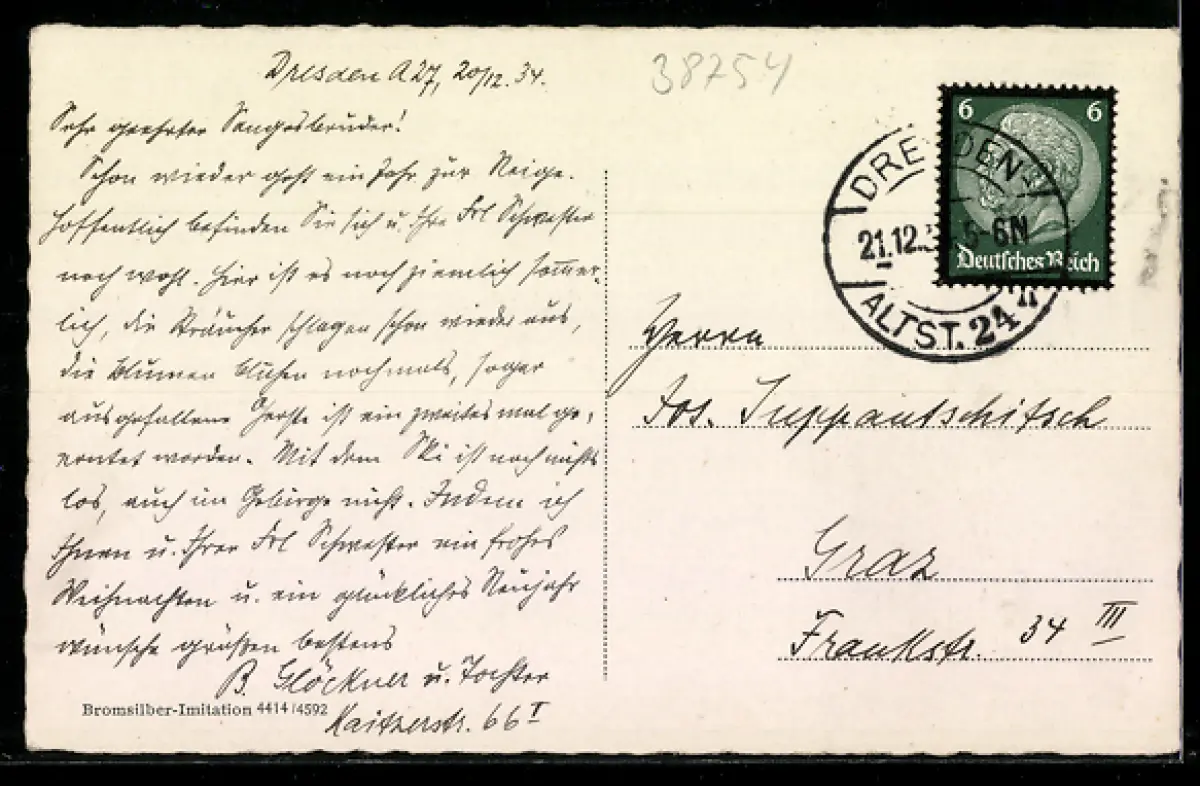 Dresden A 27, 20/12. 34.
Sehr geehrter Sangesbruder!
Schon wieder geht ein Jahr zur Neige.
Hoffentlich befinden Sie sich u. Ihre Frl Schwester
noch wohl. Hier ist es noch ziemlich sommer-
lich, die Sträucher schlagen schon wieder aus,
die Blumen blühen nochmals, sogar
ausgefallene Gerste ist ein zweites mal ge-
erntet worden. Mit dem Ski ist noch nichts
los, auch im Gebirge nicht. Indem ich
Ihnen u. Ihrer Frl Schwester ein frohes
Weihnachten u. ein glückliches Neujahr
wünsche grüßen bestens
B. Glöckner u. Tochter
Kaitzerstr. 66 I
Bromsilber-Imitation 4414/4592
38754
6 6
Deutsches Reich
DRESDEN
21.12.3 5-6N
ALTST. 24
Herrn
Jos. Suppantschitsch
Graz
Frankstr. 34 III